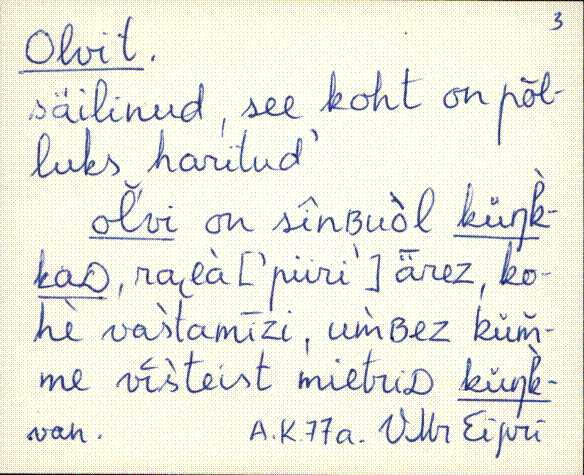 3
Olvit.
säilinud, see koht on põl-
luks haritud`
ol̆vi on sînʙuòl kŭŋk̀-
kaᴅ, raʅeà [`piiri`] ä̅rez, ko-
hè vas̀tamīzi, um̀ʙez kŭm̆-
me vīs̀teist mietriᴅ kŭŋk̀-
van. A.K. 77a. VMr Eipri